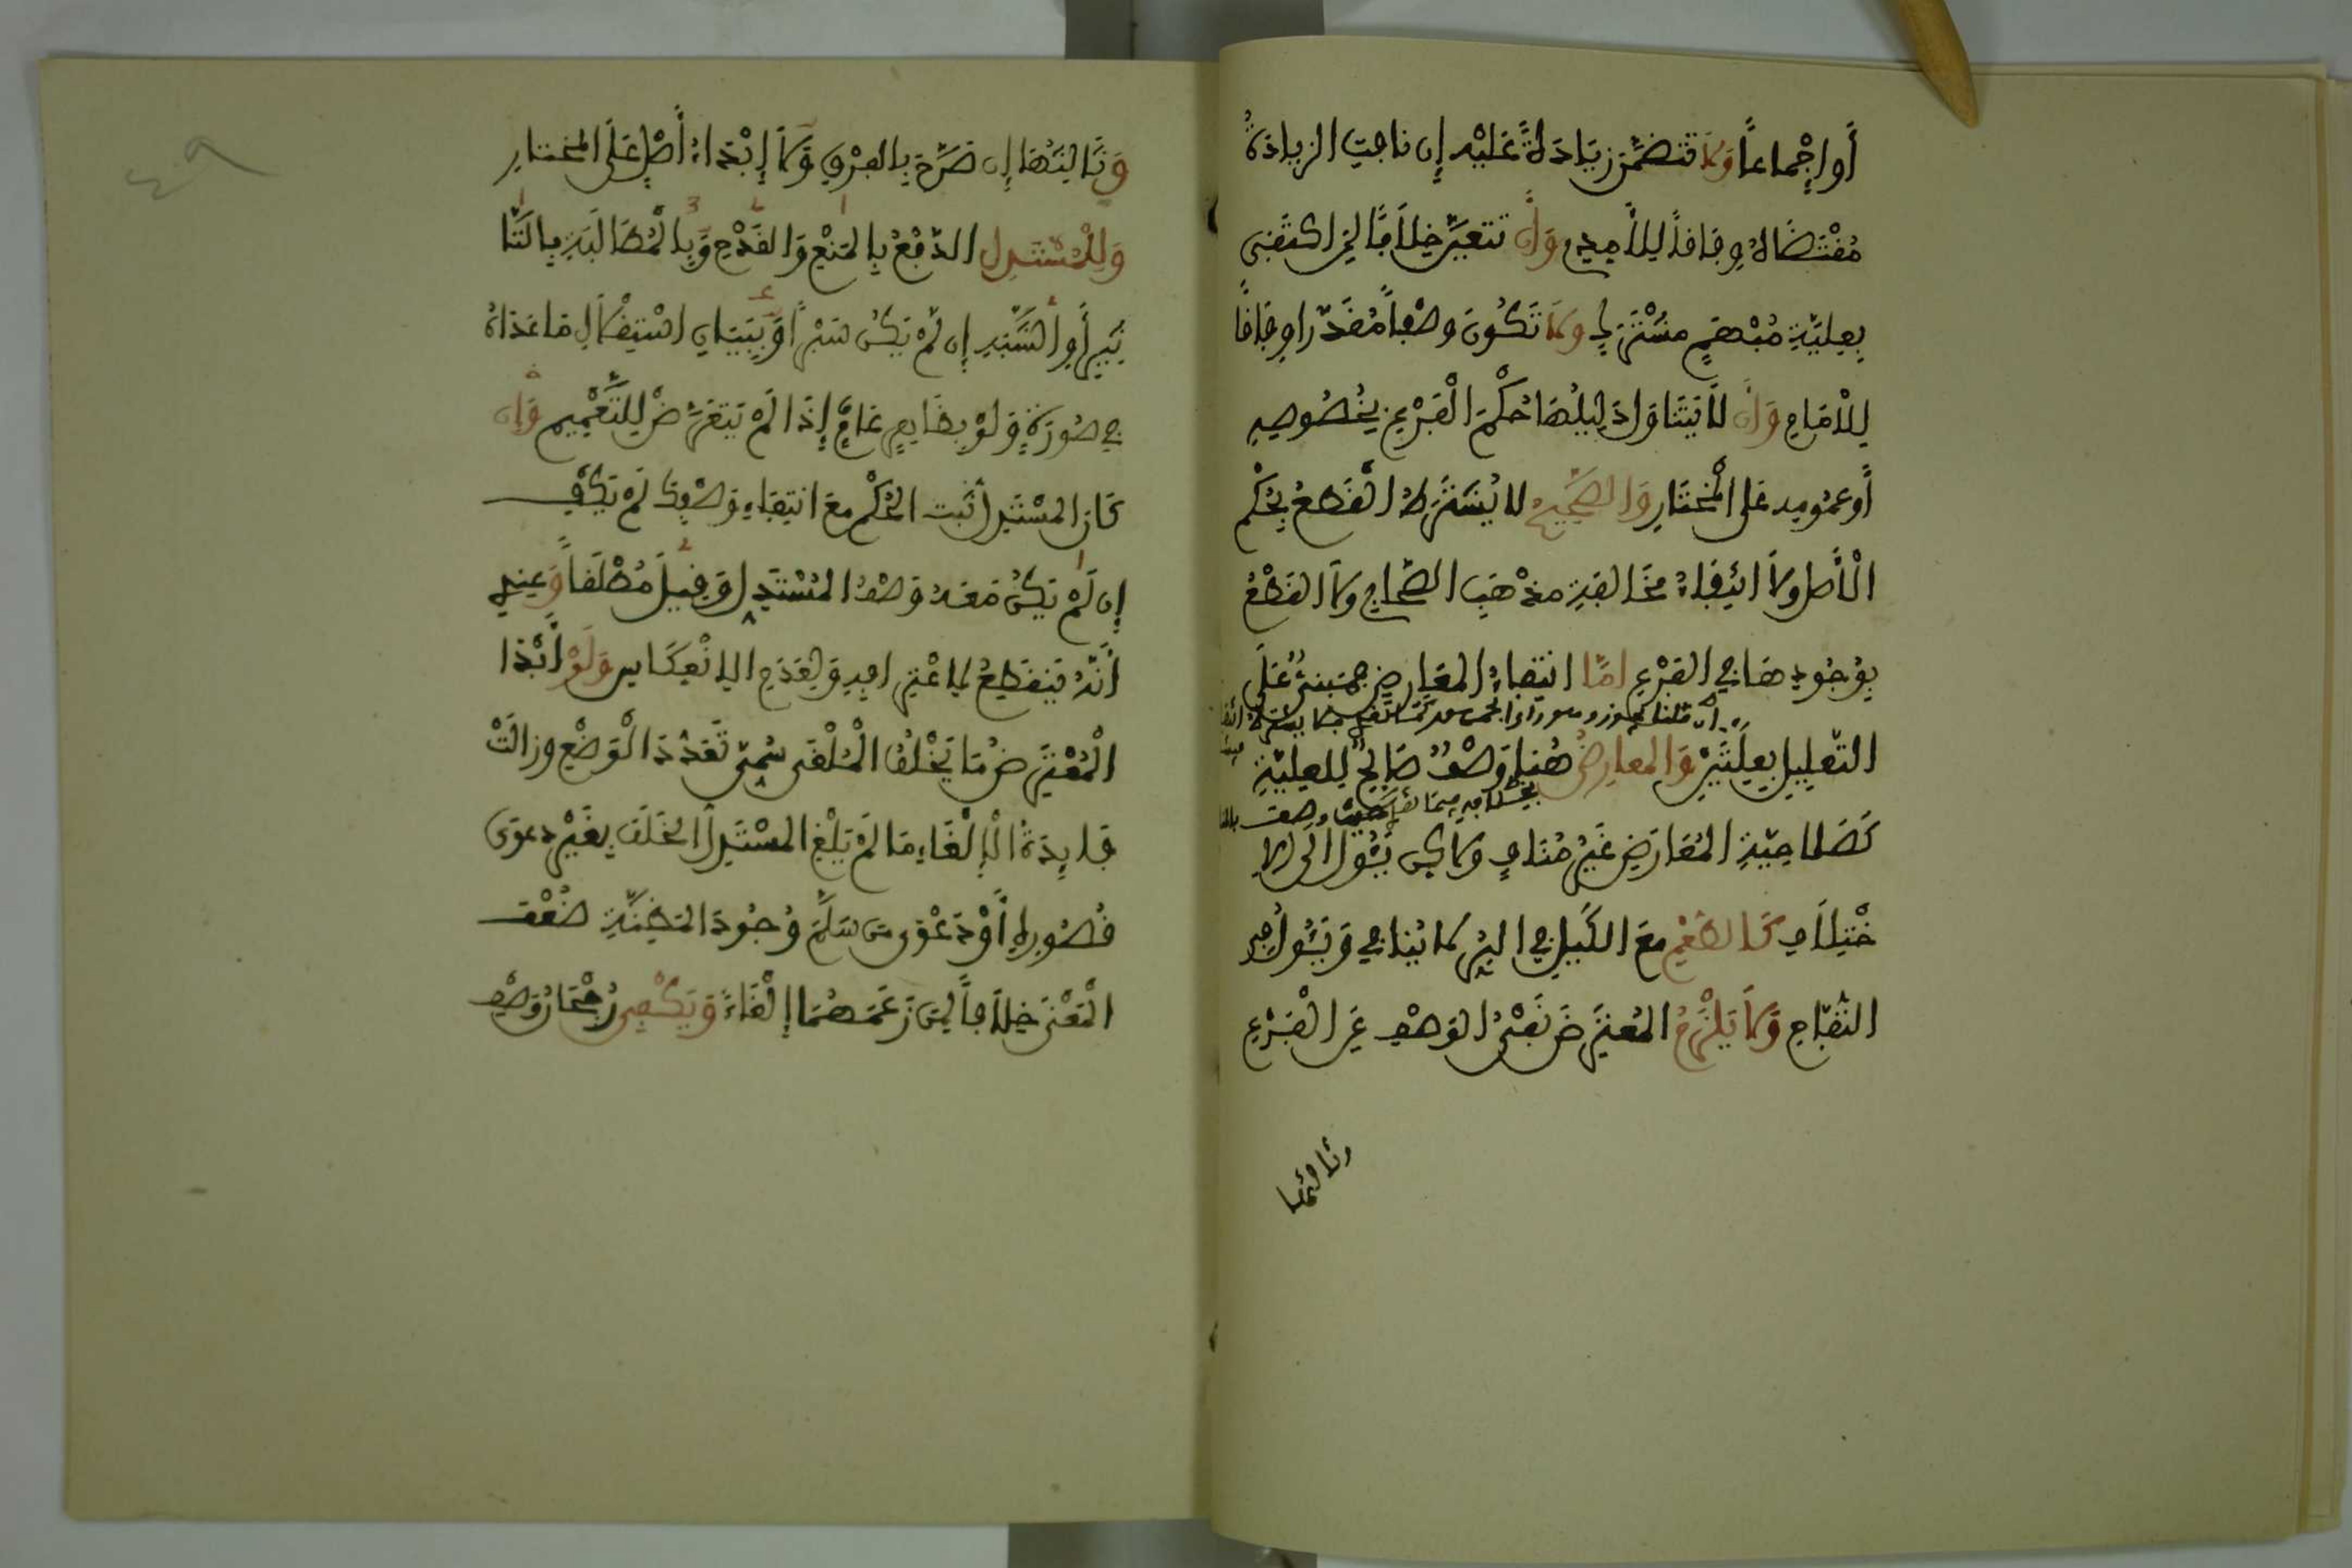 أَو إِجْماعاً وَلَا تَتَضَمَّنَ زِيَادَةً عَلَيْهِ إِن نافتِ الزيادَةُ
مُقْتَضَاهُ وِفَاقاً لِلأَمِدِي وَأَن تتعيَّن خِلَافًا لِمَن اكتَفى
بِعِلِّيَّةِ مُبْهَمٍ مُشْتَرَكٍ وَلَا تَكُونَ وصْفاً مُقَدَّرا وِفَاقًا
لِلْامَامِ وَأَن لَا يَتَنَاوَلَ دَلِيلُهَا حُكْمَ الْفَرْعِ بِخُصُوصِهِ
أَو عمُومِه عَلى الْمُخْتَارِ وَالصَّحِيحُ لَا يُشْتَرَطُ الْقَطْعُ بِحُكْمِ
الْأَصلِ وَلَا انتِفَاءُ مُخَالَفَةِ مَذْهَبِ الصَّحَابِي وَلَا القَطْعُ
بِوُجُودِهَا فِي الفَرْعِ امَّا انتِفَاءُ المُعَارِضِ فمَبنىٌّ عَلَى
التّعلِيلِ بعِلَّتَيْنِ وَالمعارِضُ هُنَا وَصْفٌ صَالِحٌ لِلعِلِّيَّةِ
كَصَلاحِيَّةِ المُعَارَضِ غَيْرُ مُنَافٍ وَلَاكِن يَئُولُ إِلَى الِا
خْتِلَافِ كَالطُّعْمِ معَ الكَيلِ فِي البُرِّ لا يُنافِي وَيَئُولُ فِي
التُّفَّاحِ وَلَا يَلْزَمُ المُعتَرِضَ نَفْىُ الوَصْفِ عَنِ الْفَرْعِ
وثالثها
وَثَالِثُهَا إِن صَرَّحَ بِالفَرْقِ وَلَا إِبْدَاءُ أَصْلٍ عَلَى المُختارِ
وَلِلْمُسْتَدِلِ الدَّفْعُ بِالمَنْعِ وَالقَدْحِ وَبِالْمُطَالَبَةِ بِالتَّا
ثِيرِ أَوِ الشَّبَهِ إِن لَمْ يَكُن سَبْرًا وَبِبَيَانِ اسْتِقْلَالِ مَا عَدَاهُ
فِي صُورَةٍ وَلَوْ بِظَاهِرٍ عَامٍّ إِذَا لَمْ يَتَعَرَّضْ لِلتَّعْمِيمِ وَإِن
قَالَ المسْتَدِل ثَبَت الحُكْم معَ انتِفَاءِ وَصْفِكَ لَمْ يَكْفِ
إِن لَمْ يَكُن مَعَهُ وَصْفُ المُسْتَدِلِ وَقِيلَ مُطْلَقاً وَعِندِي
أَنَّهُ يَنقَطِعُ لِاعْتِرَافِهِ وَلِعَدَمِ الِانْعِكَاسِ وَلَوْ أَبْدَا
الْمُعْتَرِضُ مَا يَخْلُفُ الْمُلْغَى سُمِّيَ تَعَدُّدَ الْوَضْعِ وزالَتْ
فَايِدَةُ الْإِلْغَاءِ مَا لَمْ يُلْغِ المسْتَدِلُ الخَلَفَ بِغَيْرِ دعوَى
قُصُورِهِ أَوْ دَعْوَى مَن سَلَّمَ وُجُودَ المَظِنَّةِ ضُعْفَ
الْمَعْنَى خِلَافاً لِمَن زَعَمَهُمَا إِلْغَاءً وَيَكْفِي رُجْحَانُ وَصْفِ